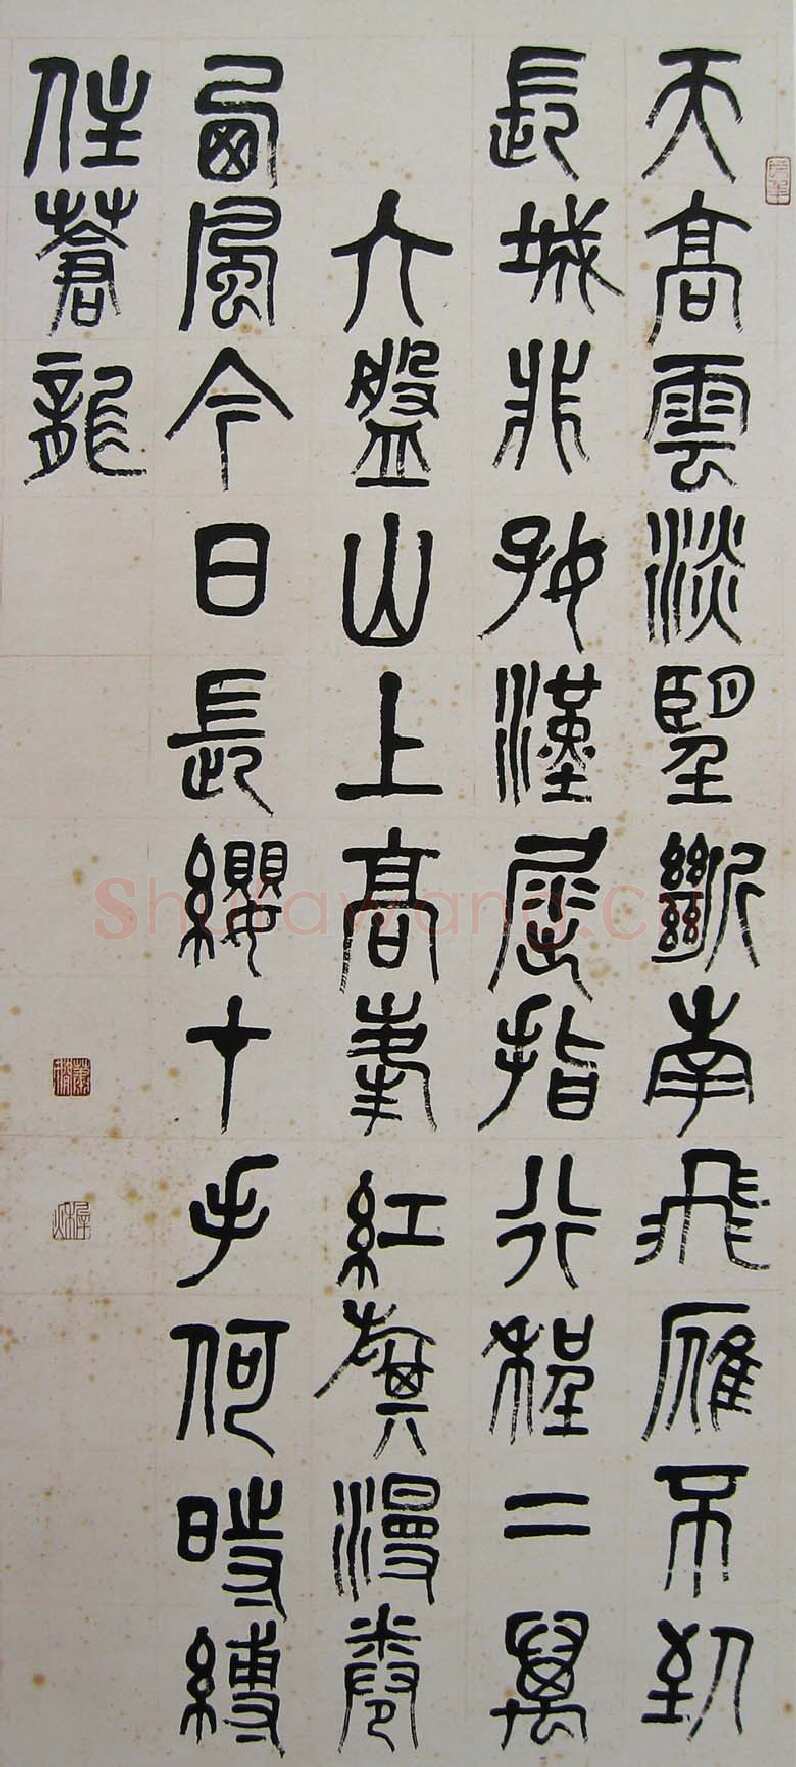 天高雲淡望斷南飛雁不到
長城非好漢屈指行程二萬
六盤山上高峯紅旗漫卷
西風今日長纓在手何時縛
住蒼龍
蕭嫻
Shufawang.cn